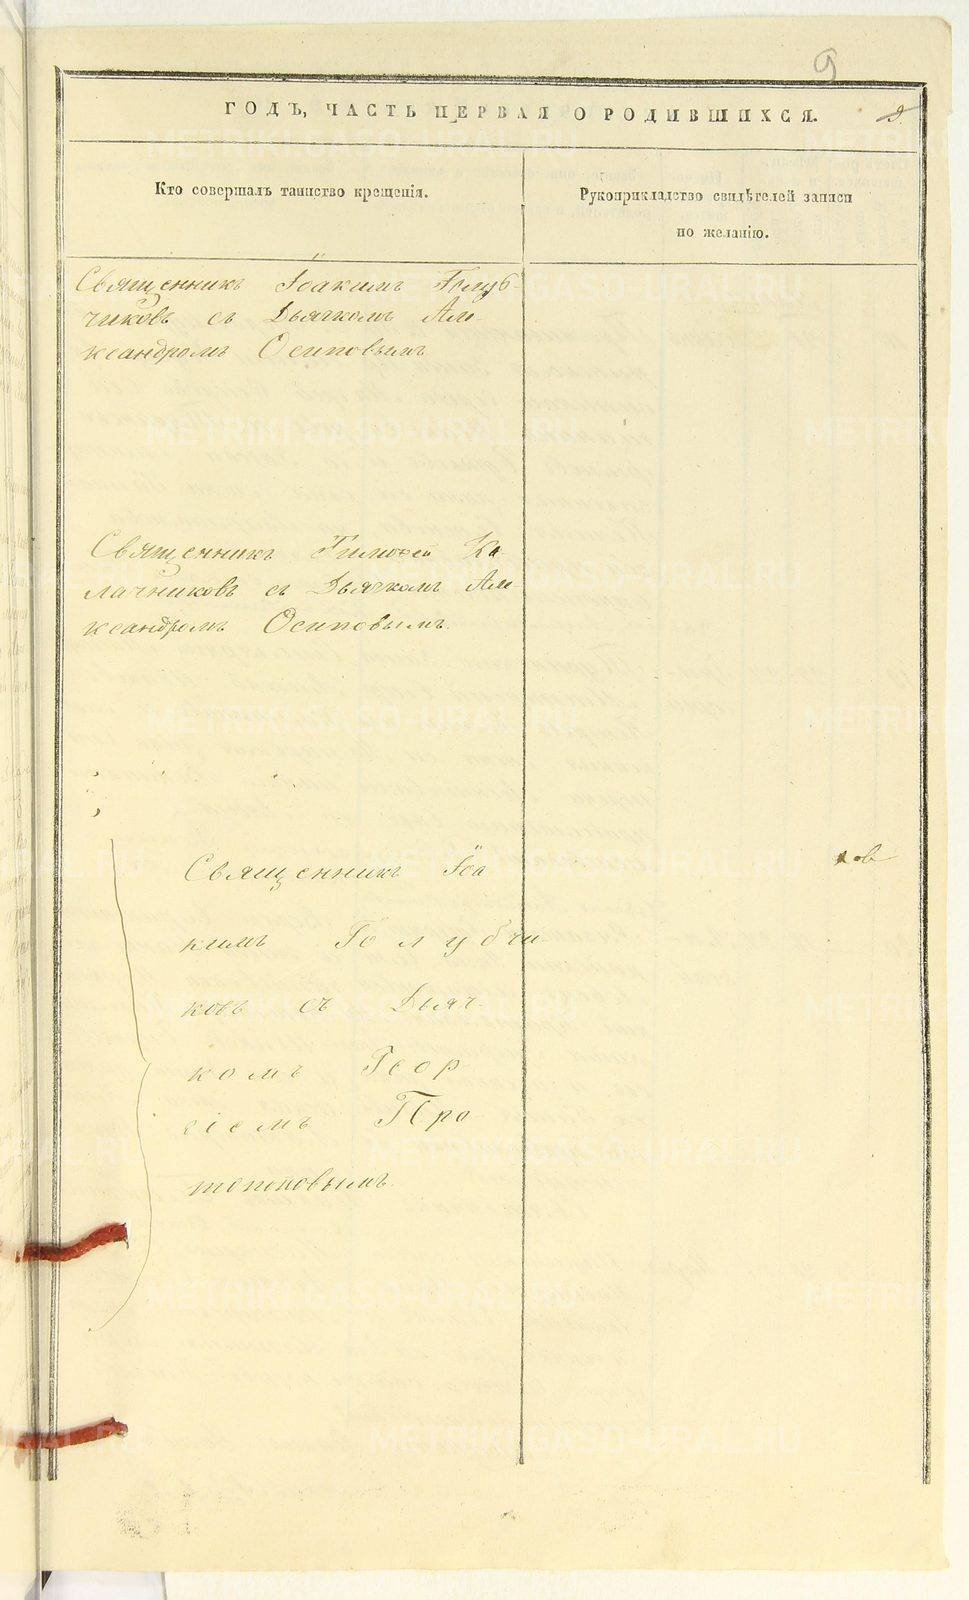 9
ГОДЪ, ЧАСТЬ ПЕРВАЯ О РОДИВШИХСЯ.
Кто совершалъ таинство крещенія.
Рукоприкладство свидѣтелей записи
по желанію.
Священникъ Іоакимъ Голуб-
чиковъ съ Дьячкомъ Але-
ксандромъ Осиповымъ
Священникъ Тимофей Ка-
лачниковъ съ Дьячкомъ Але-
ксандромъ Осиповымъ.
Священникъ Іоа
кимъ Голубчи-
ковъ съ Дьяч-
комъ Геор-
гіемъ Про
топоповымъ.
METRIKI.GASO-URAL.RU